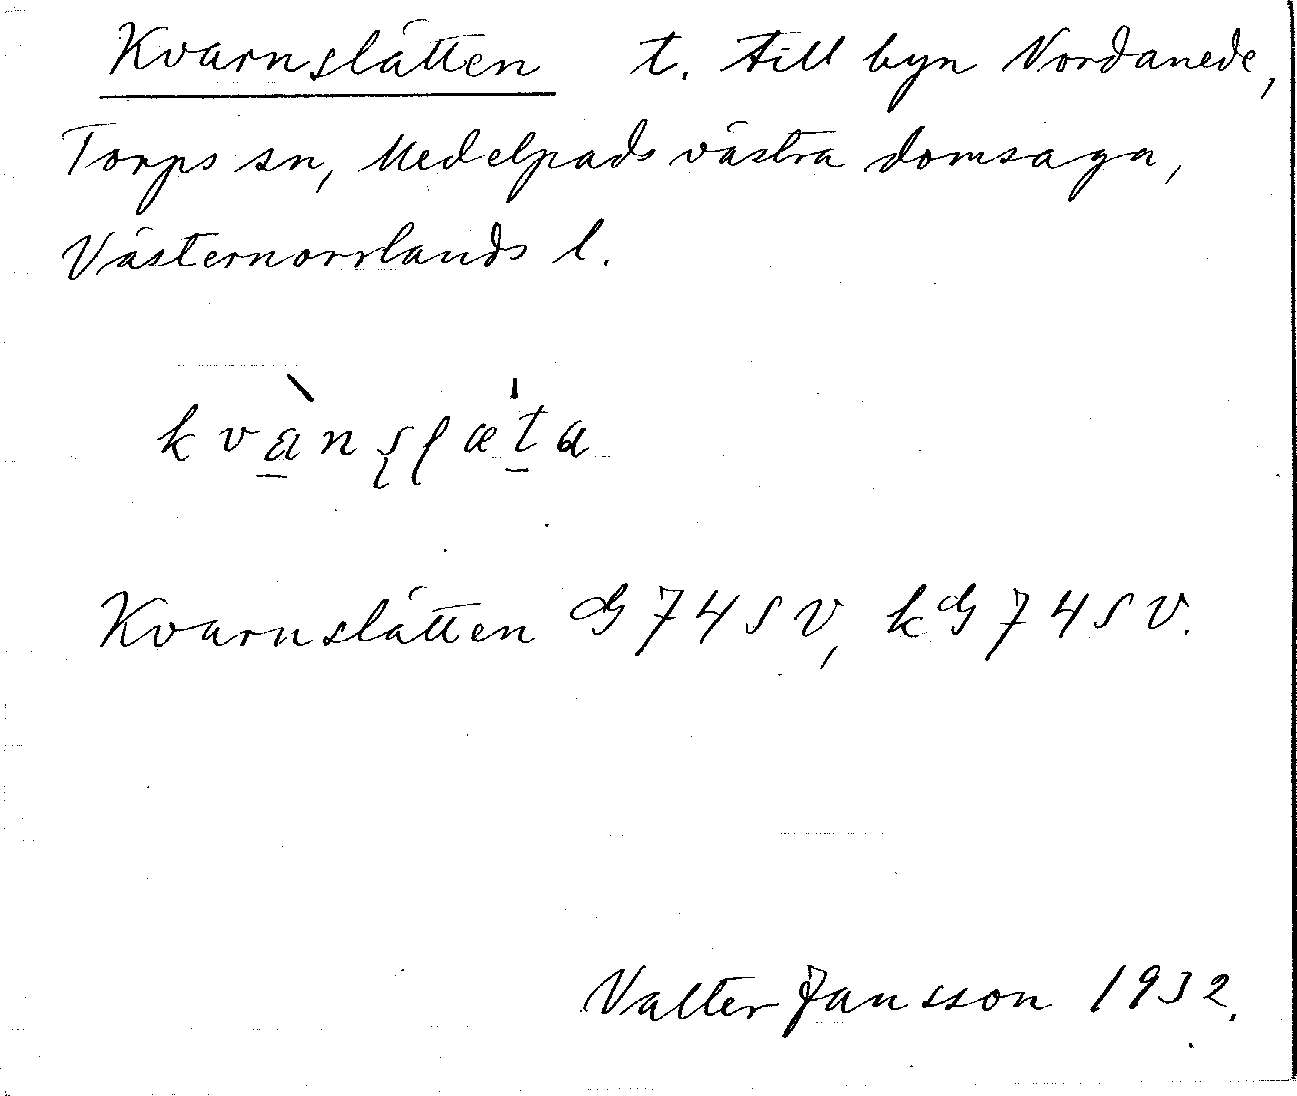 Kvarnslåtten t. till byn Nordanede,
Torps sn, Medelpads västra domsaga,
Västernorrlands l.
kvàn̠ʂlæ̍t̠a
Kvarnslåtten G 74 SV, kG 74 SV.
Valter Jansson 1932.